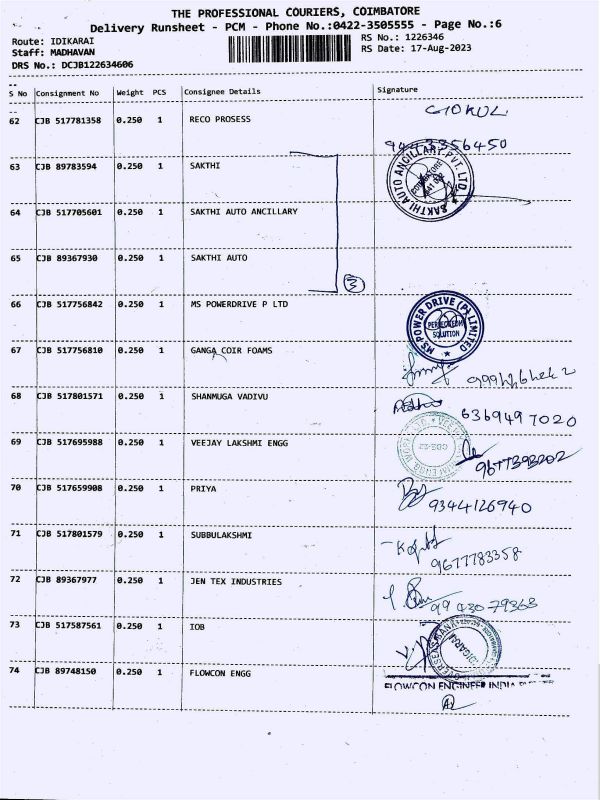 THE PROFESSIONAL COURIERS, COIMBATORE
Delivery Runsheet - PCM - Phone No.:0422-3505555 - Page No.:6
Route: IDIKARAI RS No.: 1226346
Staff: MADHAVAN RS Date: 17-Aug-2023
DRS No.: DCJB122634606
S No Consignment No Weight PCS Consignee Details Signature
62 CJB 517781358 0.250 1 RECO PROSESS GOKUL
9443356450
63 CJB 89783594 0.250 1 SAKTHI
SAKTHI AUTO ANCILLARY PVT. LTD.
64 CJB 517705601 0.250 1 SAKTHI AUTO ANCILLARY
65 CJB 89367930 0.250 1 SAKTHI AUTO
3
66 CJB 517756842 0.250 1 MS POWERDRIVE P LTD
MS POWER DRIVE (P) LIMITED
SOLUTION
67 CJB 517756810 0.250 1 GANGA COIR FOAMS
68 CJB 517801571 0.250 1 SHANMUGA VADIVU
6369497020
69 CJB 517695988 0.250 1 VEEJAY LAKSHMI ENGG
9677393202
70 CJB 517659908 0.250 1 PRIYA
9344126940
71 CJB 517801579 0.250 1 SUBBULAKSHMI
9677783358
72 CJB 89367977 0.250 1 JEN TEX INDUSTRIES
9943079368
73 CJB 517587561 0.250 1 IOB
IDIGARAI
74 CJB 89748150 0.250 1 FLOWCON ENGG
FLOWCON ENGINEER INDIA